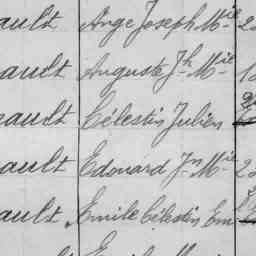 ault Ange Joseph Mie
ault Auguste Jh Mie
ault Célestin Julien
ault Edouard Jn Mie
ault Emile Célestin Em